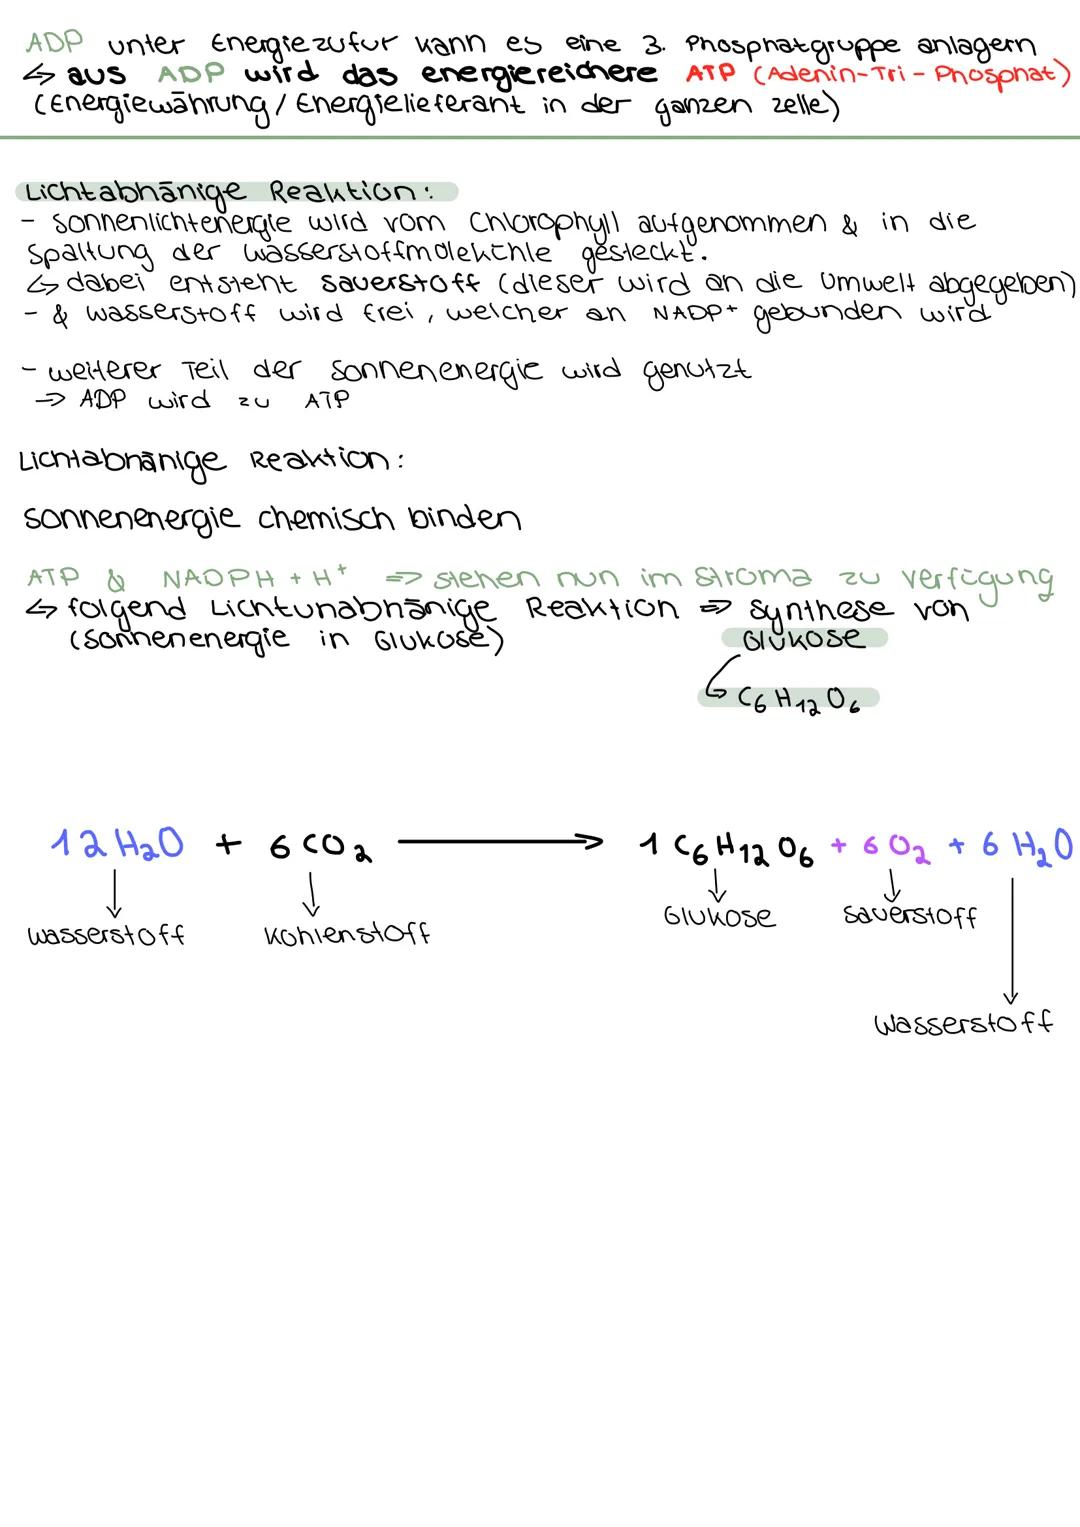 ADP unter Energiezufur kann es eine 3. Phosphatgruppe anlagern
↳ aus ADP wird das energiereichere ATP (Adenin-Tri-Phosphat)
(Energiewährung/Energielieferant in der ganzen zelle)
Lichtabhänige Reaktion:
- Sonnenlichtenergie wird vom Chlorophyll aufgenommen & in die
Spaltung der Wasserstoffmoleküle gesteckt.
↳ dabei entsteht Sauerstoff (dieser wird an die Umwelt abgegeben)
- & Wasserstoff wird frei, welcher an NADP+ gebunden wird
- weiterer Teil der Sonnenenergie wird genutzt
=> ADP wird zu ATP
Lichtabhänige Reaktion:
Sonnenenergie chemisch binden
ATP & NADPH + H⁺ => stehen nun im Stroma zu verfügung
↳ folgend Lichtunabhänige Reaktion => Synthese von
(Sonnenenergie in Glukose) Glukose
↳ C₆H₁₂O₆
12 H₂O + 6 CO₂ → 1 C₆H₁₂O₆ + 6 O₂ + 6 H₂O
Wasserstoff Kohlenstoff Glukose Sauerstoff
Wasserstoff